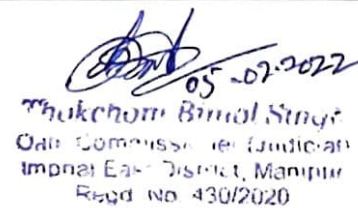 05-02-2022
Thokchom Bimol Singh
Oath Commissioner (Judicial)
Imphal East District, Manipur
Regd. No. 430/2020